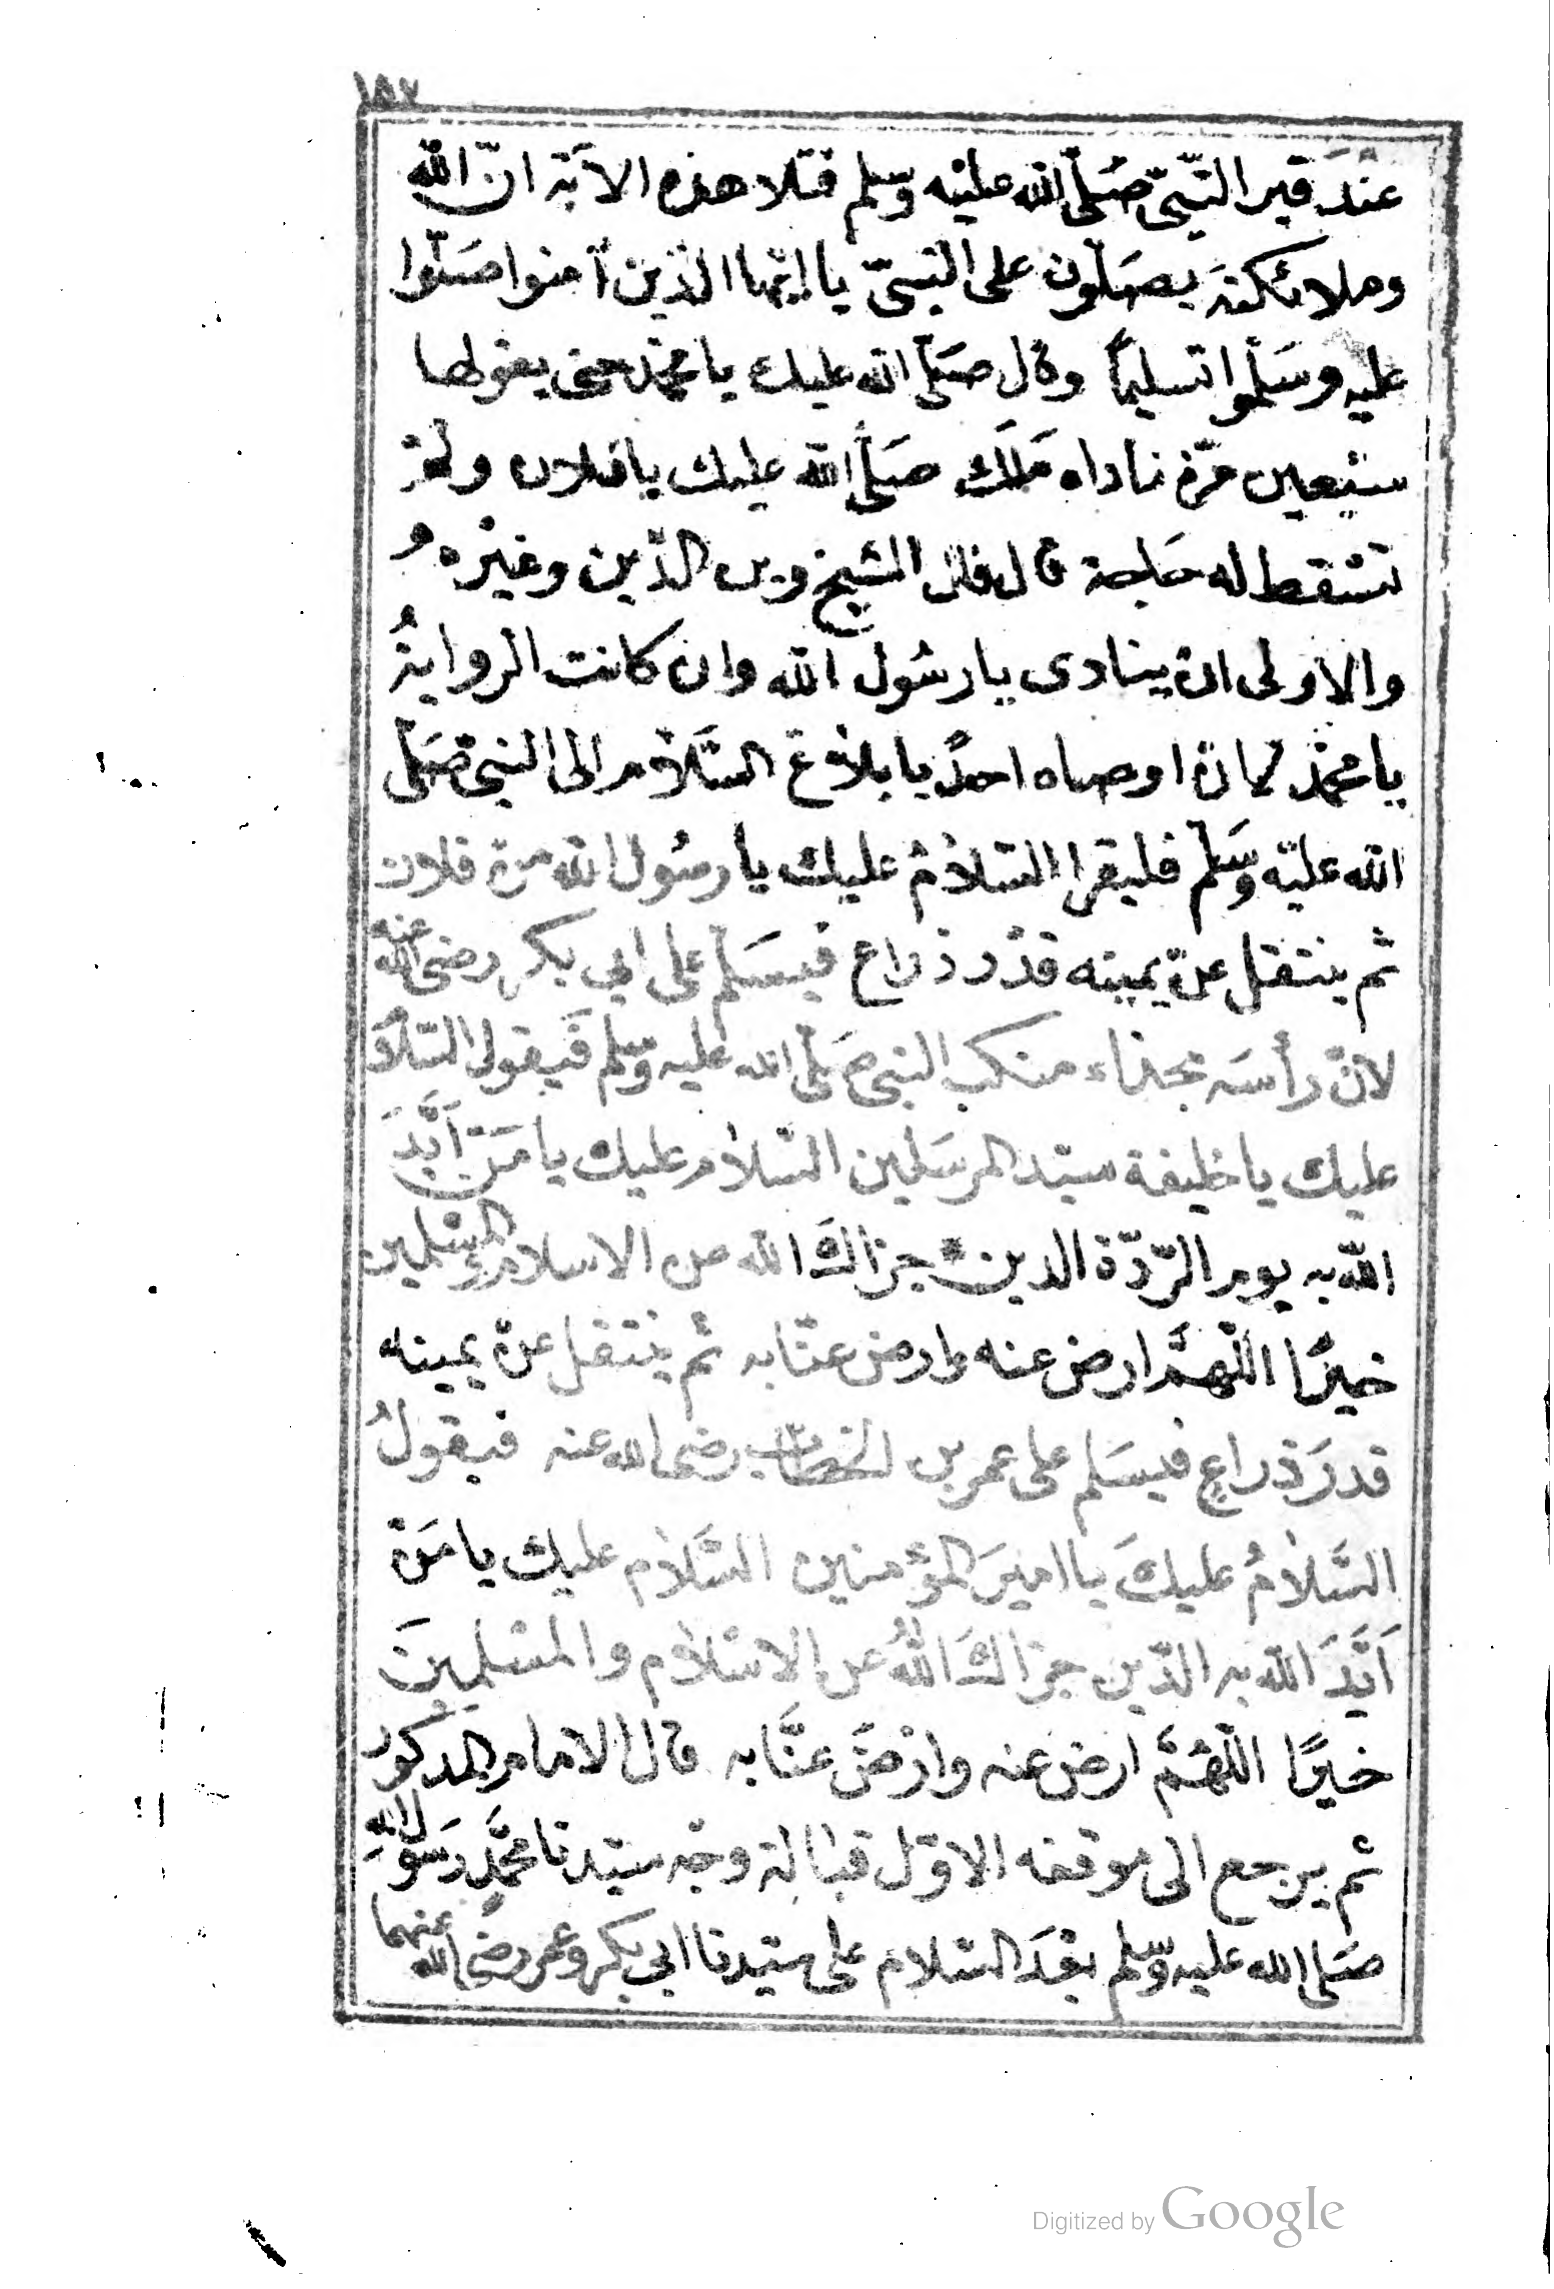 ١٥٧
عنْدَ قبر النّبيّ صَلّى الله عليْه وسّلم فتلا هذه الآية انّ الله
وملائكته يصَلّون على النبىّ يا ايّها الذين آمنوا صَلّوا
عليه وسَلّموا تسليمًا وقال صَلّى الله عليك يا محمّد حتى يقولها
سبْعين مرّة ناداه مَلَك صَلّى الله عليك يا فلان ولمْ
تسْقط له حَاجة قال الشيخ الدّين وغيْره
والاولى انْ ينادى يا رسُول الله وان كانت الرواية
يا محمّد اوصاه احدٌ بابلاغ السّلام الى النبى صَلّى
الله عليْه وسَلّم فليقرا السّلامُ عليك يا رسُول الله منْ فلان
ثم ينتقل عنْ يمينه قدْر ذراع فيسَلّم على ابي بكر رضى الله عنه
لانّ رأسَه بحذاء منكب النبى صَلّى الله عليه وسلم فَيقول السّلام
عليك يا خليفة سيّد المرسَلين السّلام عليك يا مَنْ اَيَّدَ
الله به يوم الرّدّة الدين جزاكَ الله عن الاسلام والمسْلمين
خيرًا اللّهمَّ ارض عنه وارض عنّا به ثم ينتقل عنْ يمينه
قدرَ ذراعٍ فيسَلم على عمر بن الخطّاب رضى الله عنه فيقولُ
السَّلامُ عليكَ يا اميرَ المؤمنين السَّلام عليك يا مَنْ
اَيَّدَ الله به الدّين جزاكَ اللهُ عن الاسْلام والمسْلمينَ
خيرًا اللّهمَّ ارض عنه وارْضَ عنَّا به قال الامام المذكور
ثم يرجع الى موقفه الاوّل قبالة وجْه سيّدنا محمَّدٍ رَسُول اللهِ
صَلى الله عليه وسّلم بعْدَ السّلام على سيّدنا ابي بكر وعمر رضى الله عنهما
Digitized by Google